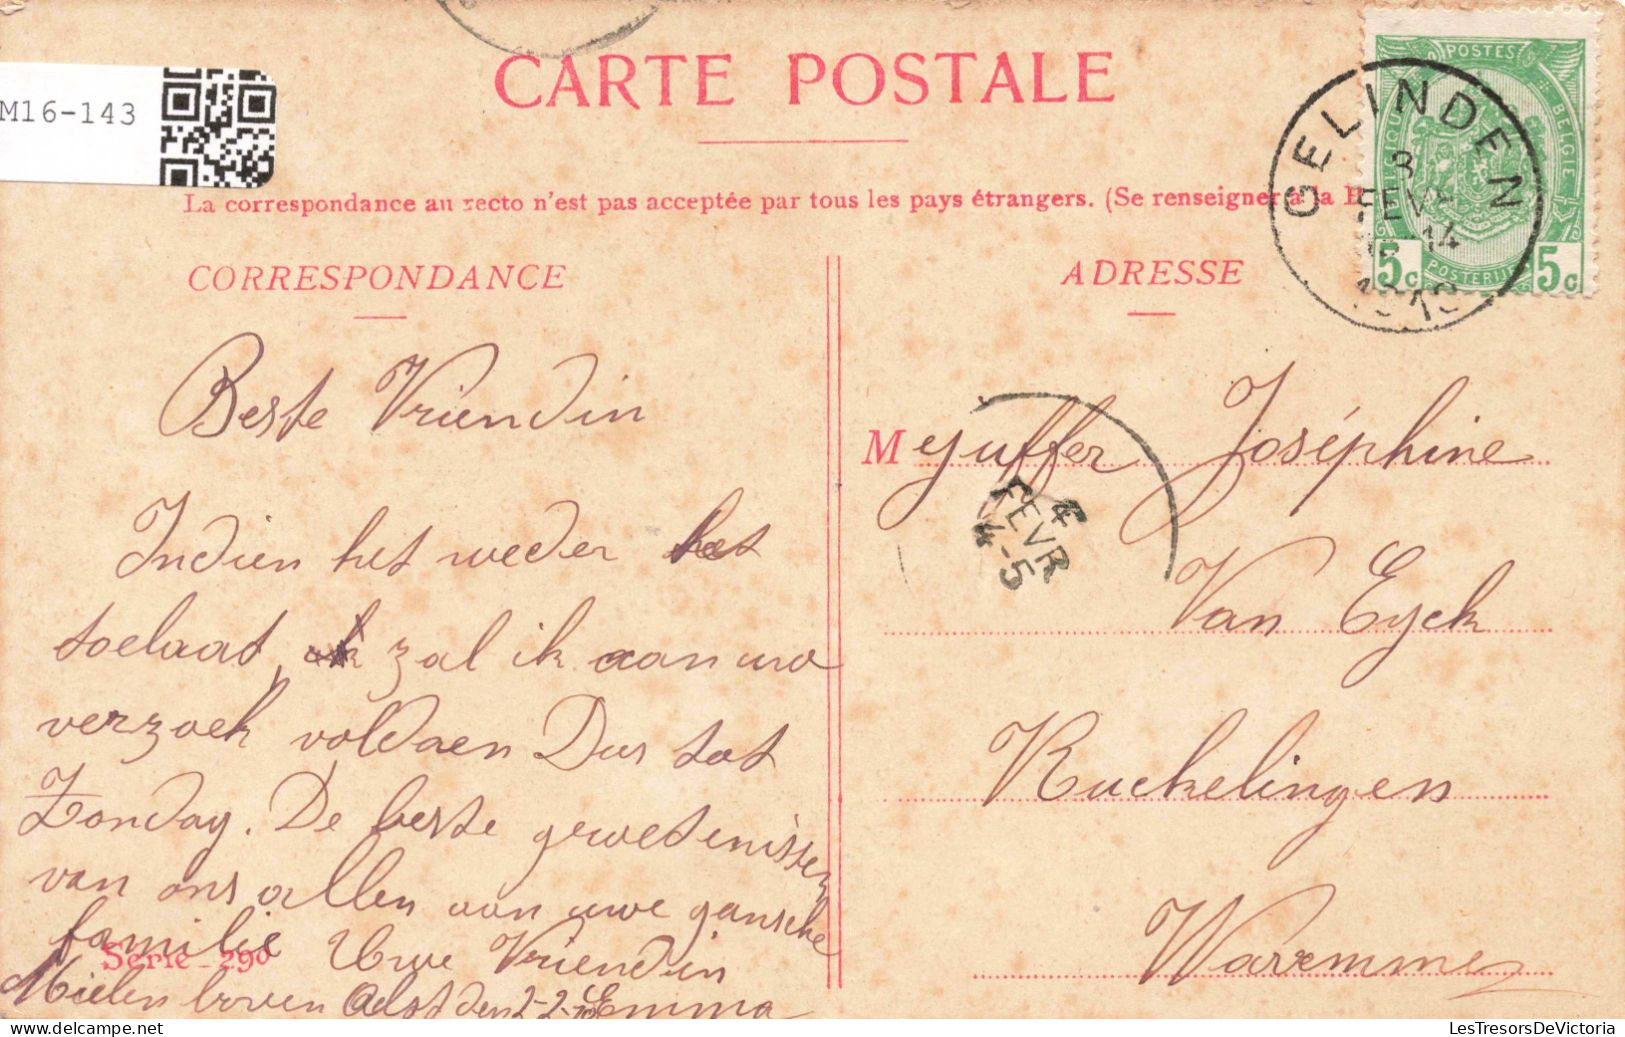 CARTE POSTALE
M16-143
La correspondance au recto n'est pas acceptée par tous les pays étrangers. (Se renseigner à la
POSTES
BELGIE
POSTERIJEN
5c 5c
GELINDEN
3
FEVR
14
CORRESPONDANCE
Beste Vriendin
Indien het weder het
toelaat, zal ik aan uw
verzoek voldoen Dus tot
Zondag. De beste gewetenissen
van ons allen aan uwe gansche
familie Uwe Vriendin
Mielen boven Aelst den 2-2-10 Emma
Série 290
ADRESSE
Mejuffer Joséphine
4
FEVR
4-5
Van Eyck
Ruckelingen
Waremme
LesTresorsDeVictoria